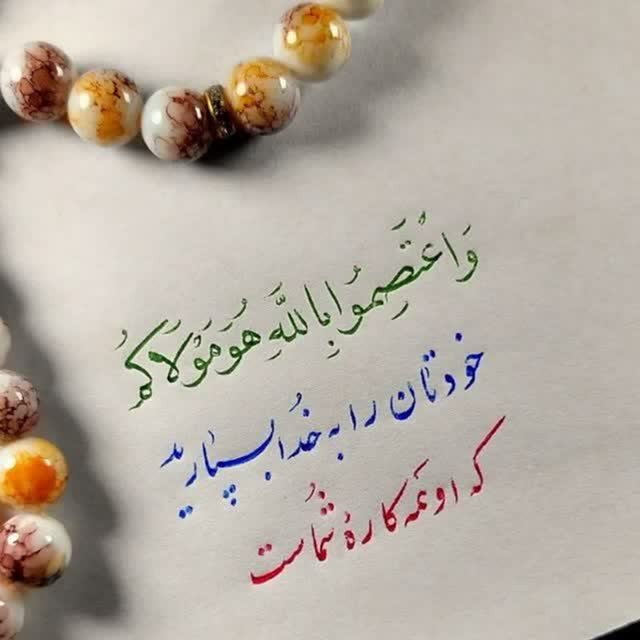 وَاعْتَصِمُوا بِاللَّهِ هُوَ مَوْلَاكُمْ
خودتان را به خُدا بسپارید
که او همه کارهٔ شُماست